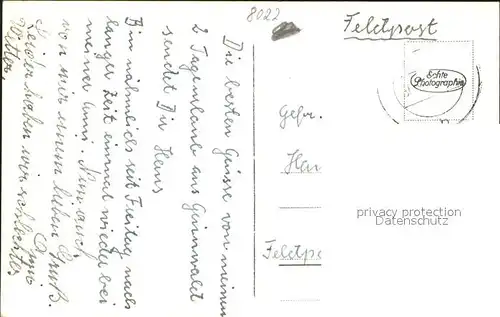 8022
Feldpost
Echte
Photographie
Die besten Grüsse von meinem
2 Tagesurlaub aus Grünwald
sendet Dir Hans
Bin nähmlich seit Freitag nach
langer Zeit einmal wieder bei
meiner Anni. Nun auch
von mir einen lieben Gruß.
Anni
Leider haben wir schlechtes
Wetter.
Gefr.
Han
Feldpo
privacy protection
Datenschutz